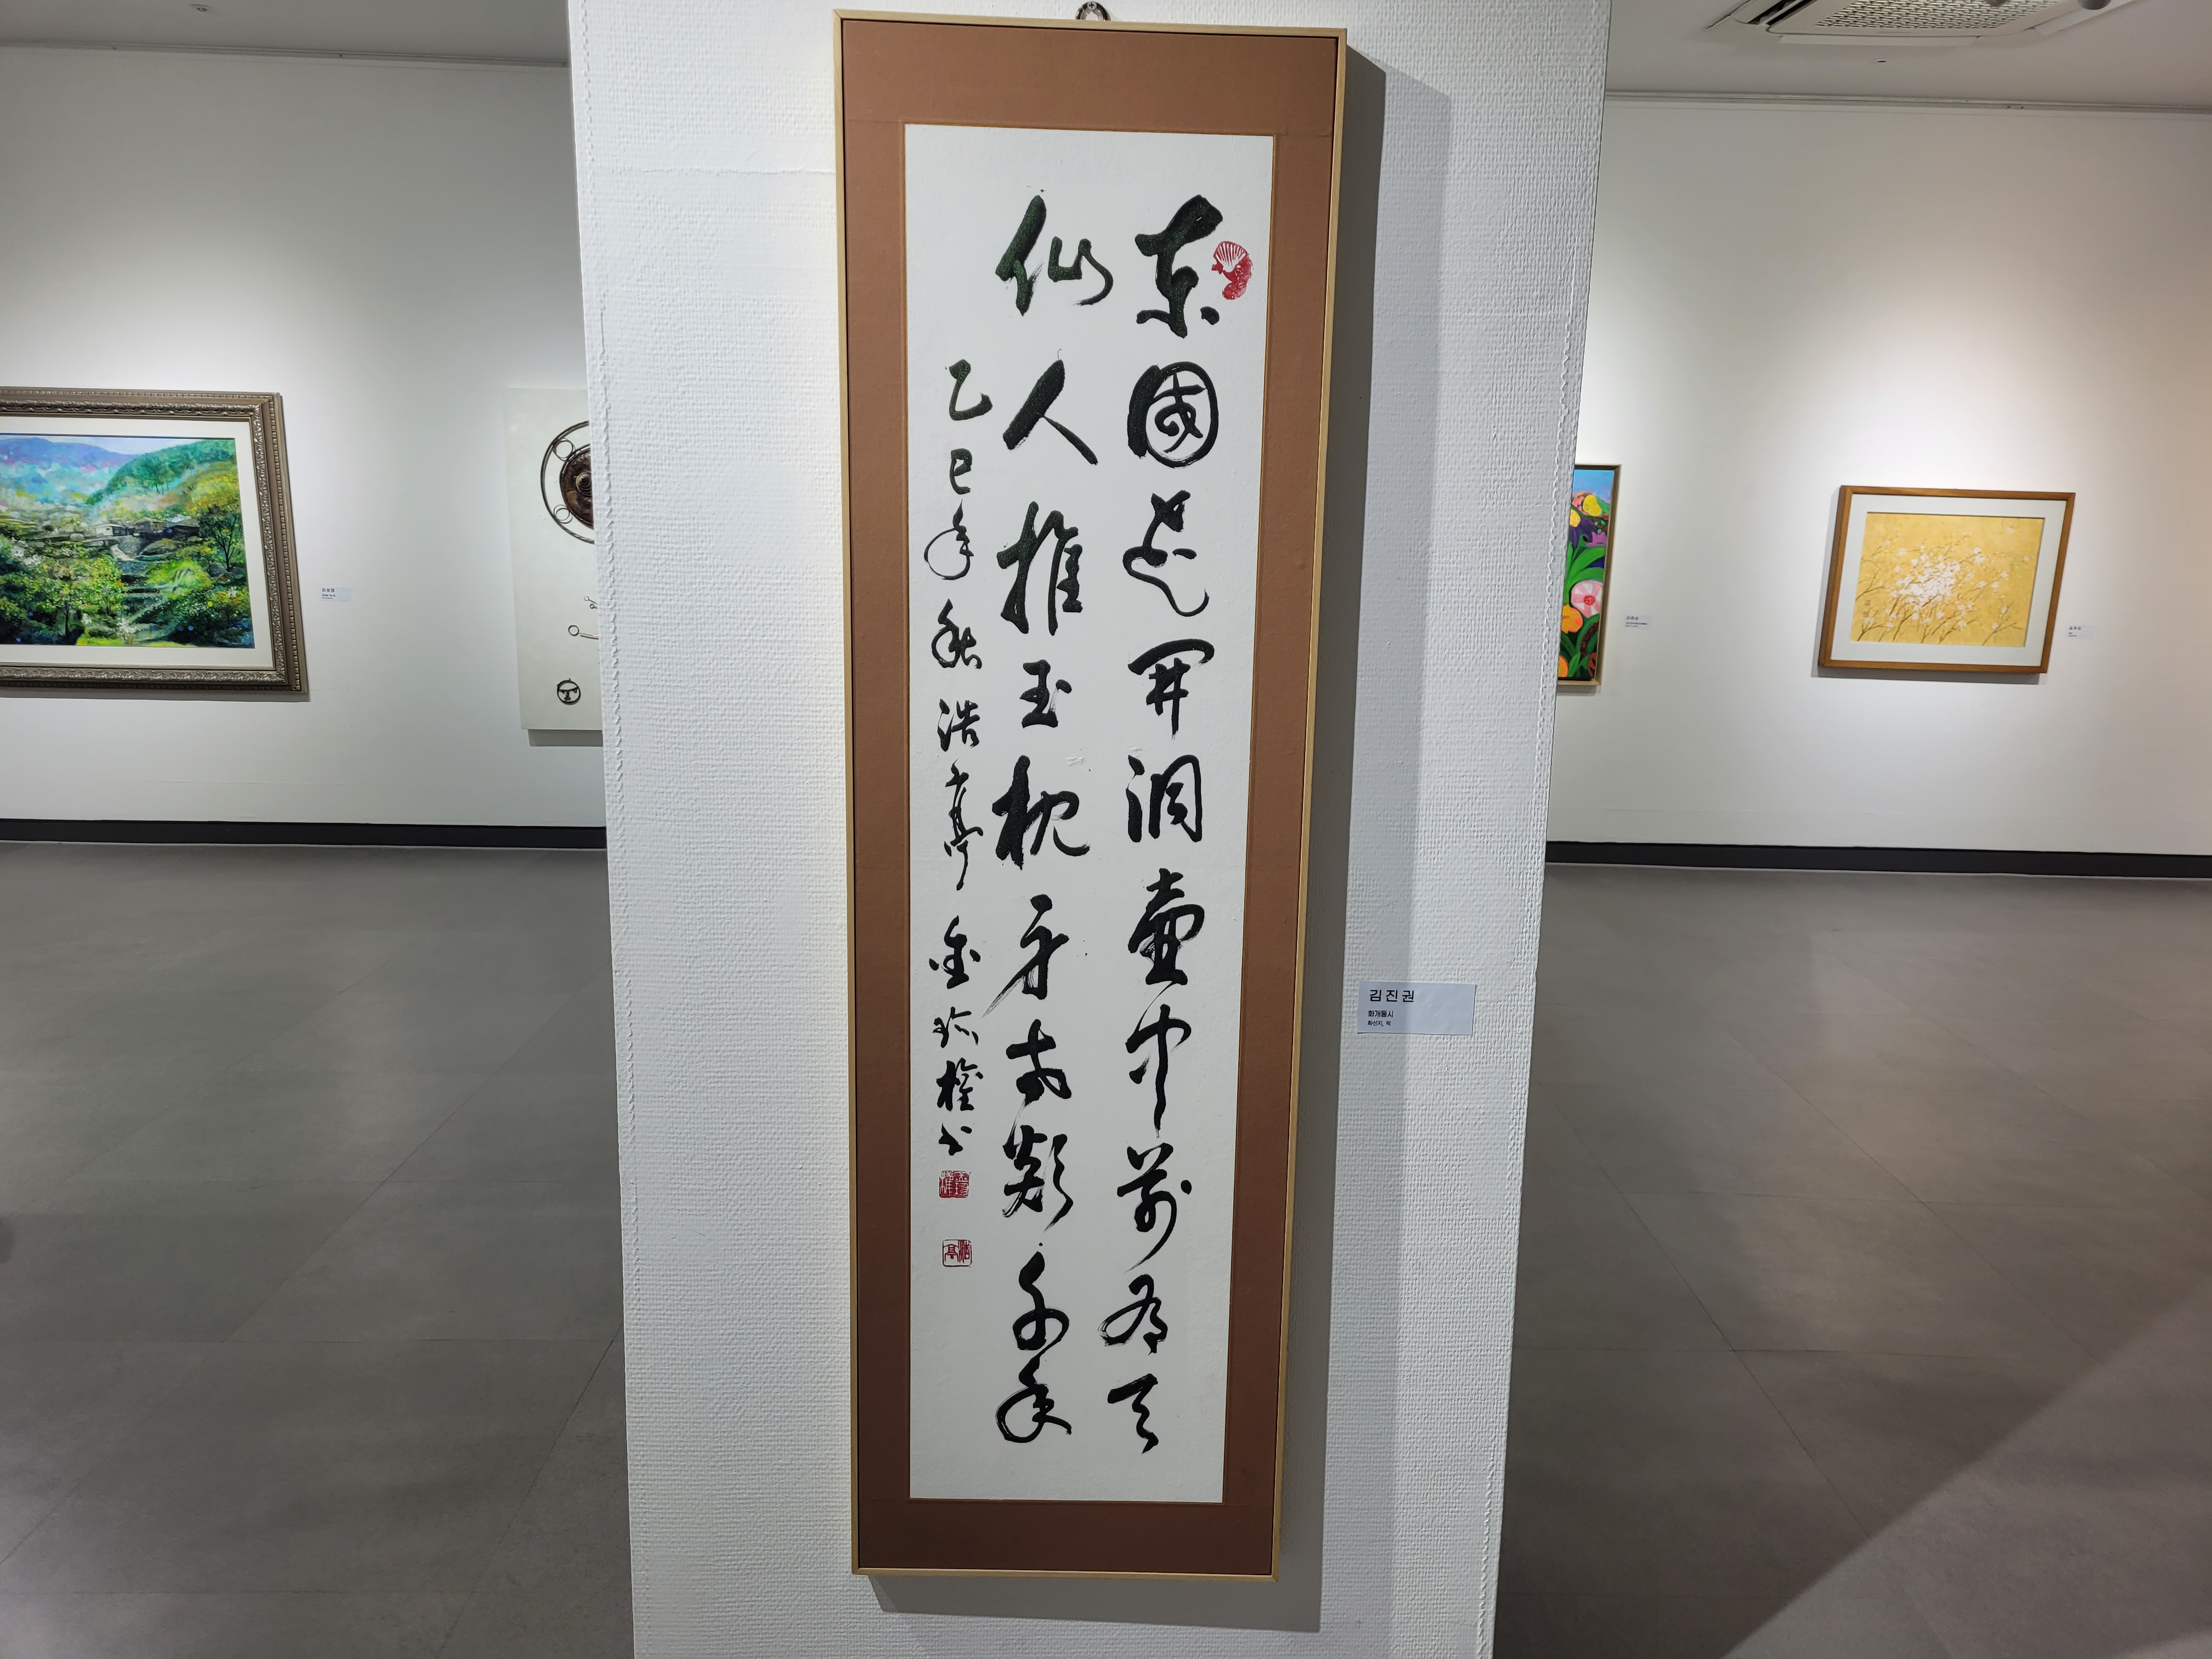 東國花開洞壺中別有天
仙人推玉枕身世欻千年
乙巳年秋浩亭金珍權書
김진권
화개동시
화선지, 먹